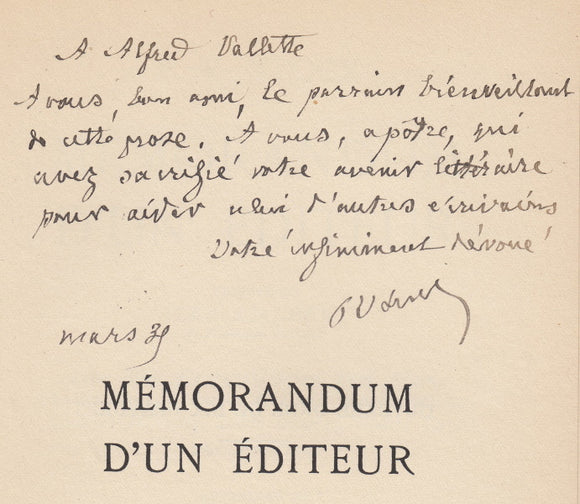 A Alfred Vallette
A vous, bon ami, le parrain bienveillant
de cette prose. A vous, apôtre, qui
avez sacrifié votre avenir littéraire
pour aider celui d'autres écrivains
Votre infiniment dévoué
mars 35
MÉMORANDUM
D'UN ÉDITEUR